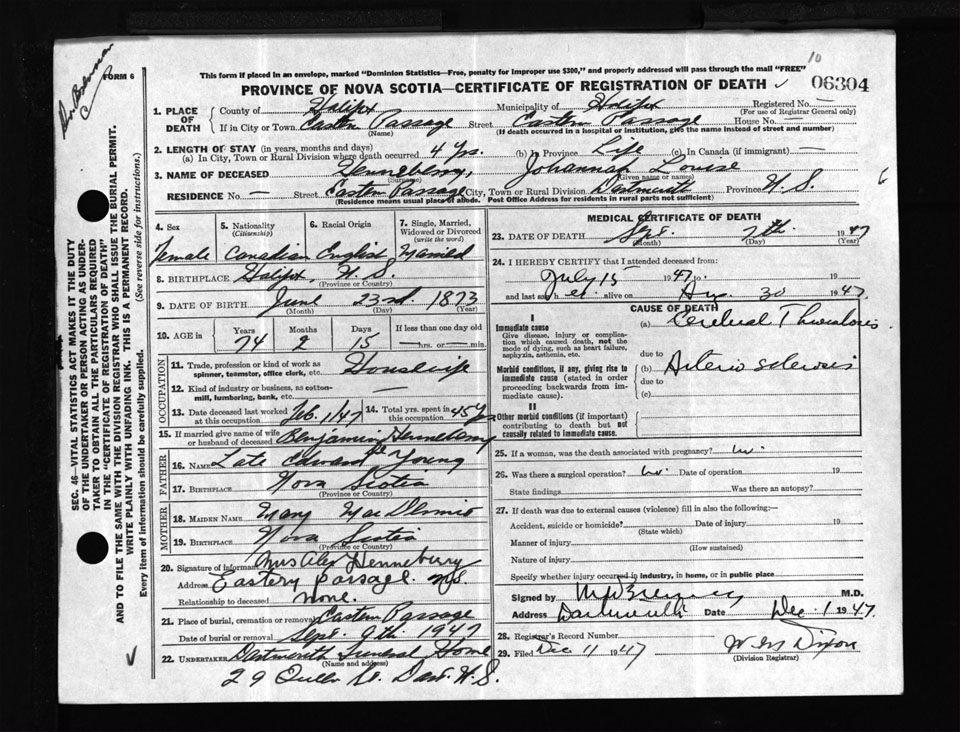 Dr Brennan
FORM 6
This form if placed in an envelope, marked "Dominion Statistics—Free, penalty for improper use $300," and properly addressed will pass through the mail "FREE"
10
PROVINCE OF NOVA SCOTIA—CERTIFICATE OF REGISTRATION OF DEATH
06304
1. PLACE OF DEATH
County of Halifax Municipality of Halifax Registered No. —
(For use of Registrar General only)
If in City or Town Eastern Passage Street Eastern Passage House No. —
(Name) (If death occurred in a hospital or institution, give the name instead of street and number)
2. LENGTH OF STAY (in years, months and days)
(a) In City, Town or Rural Division where death occurred 4 Yrs. (b) In Province Life (c) In Canada (if immigrant) —
3. NAME OF DECEASED Henneberry, Johannah Louise
(Surname) (Given name or names)
RESIDENCE No. — Street Eastern Passage City, Town or Rural Division Dartmouth Province N. S.
(Residence means usual place of abode. Post Office Address for residents in rural parts not sufficient)
4. Sex
Female
5. Nationality
(Citizenship)
Canadian
6. Racial Origin
English
7. Single, Married, Widowed or Divorced
(write the word)
Married
8. BIRTHPLACE Halifax N. S.
(Province or Country)
9. DATE OF BIRTH June 23rd. 1873
(Month) (Day) (Year)
10. AGE in
Years Months Days If less than one day old
74 2 15 —hrs. or —min.
OCCUPATION
11. Trade, profession or kind of work as spinner, teamster, office clerk, etc. Housewife
12. Kind of industry or business, as cotton-mill, lumbering, bank, etc. —
13. Date deceased last worked at this occupation Feb. 1/47
14. Total yrs. spent in this occupation 45 Yrs
15. If married give name of wife or husband of deceased Benjamin Henneberry
FATHER
16. NAME Late Edward Young
17. BIRTHPLACE Nova Scotia
(Province or Country)
MOTHER
18. MAIDEN NAME Mary
19. BIRTHPLACE Nova Scotia
(Province or Country)
20. Signature of informant Mrs Alex Henneberry
Address Eastern Passage. N.S.
Relationship to deceased None.
21. Place of burial, cremation or removal Eastern Passage
Date of burial or removal Sept. 9th. 1947
22. UNDERTAKER Dartmouth Funeral Home
(Name and address)
29 Queen St. Dart. N. S.
MEDICAL CERTIFICATE OF DEATH
23. DATE OF DEATH Sept. 7th. 1947
(Month) (Day) (Year)
24. I HEREBY CERTIFY that I attended deceased from:
July 15 1947 to 19
and last saw h er alive on Aug. 30 1947.
CAUSE OF DEATH
I
Immediate cause
Give disease, injury or complication which caused death, not the mode of dying, such as heart failure, asphyxia, asthenia, etc.
(a) Cerebral Thrombosis
due to
Morbid conditions, if any, giving rise to immediate cause (stated in order proceeding backwards from immediate cause).
(b) Arterio sclerosis
due to
(c)
II
Other morbid conditions (if important) contributing to death but not causally related to immediate cause.
25. If a woman, was the death associated with pregnancy? no.
26. Was there a surgical operation? no. Date of operation 19
State findings Was there an autopsy?
27. If death was due to external causes (violence) fill in also the following:—
Accident, suicide or homicide? Date of injury 19
(State which)
Manner of injury
(How sustained)
Nature of injury
Specify whether injury occurred in industry, in home, or in public place
Signed by M.D.
Address Dartmouth Date Dec. 1 1947.
28. Registrar's Record Number
29. Filed Dec 11 1947 Dixon
(Division Registrar)
SEC. 46—VITAL STATISTICS ACT MAKES IT THE DUTY
OF THE UNDERTAKER OR PERSON ACTING AS UNDERTAKER TO OBTAIN ALL THE PARTICULARS REQUIRED
IN THE "CERTIFICATE OF REGISTRATION OF DEATH"
AND TO FILE THE SAME WITH THE DIVISION REGISTRAR WHO SHALL ISSUE THE BURIAL PERMIT.
WRITE PLAINLY WITH UNFADING INK. THIS IS A PERMANENT RECORD.
Every item of information should be carefully supplied. (See reverse side for instructions.)